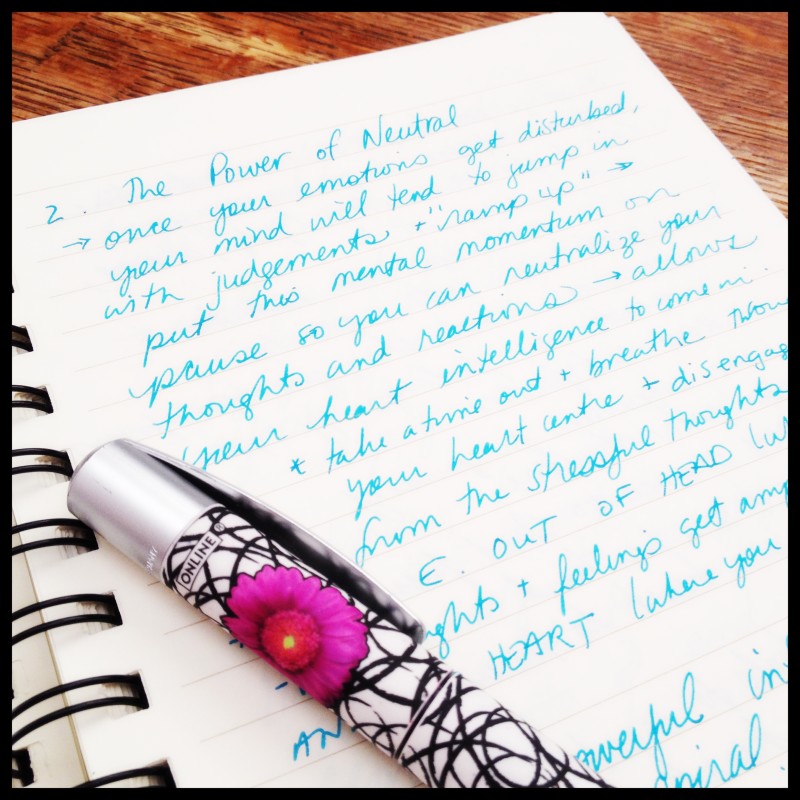 2. The Power of Neutral
→ once your emotions get disturbed,
your mind will tend to jump in
with judgements + "ramp up" →
put this mental momentum on
pause so you can neutralize your
thoughts and reactions → allows
your heart intelligence to come in.
* take a time out + breathe
your heart centre + disengage
from the stressful thoughts
E. OUT OF HEAD
+ feelings get
HEART (where you
ONLINE